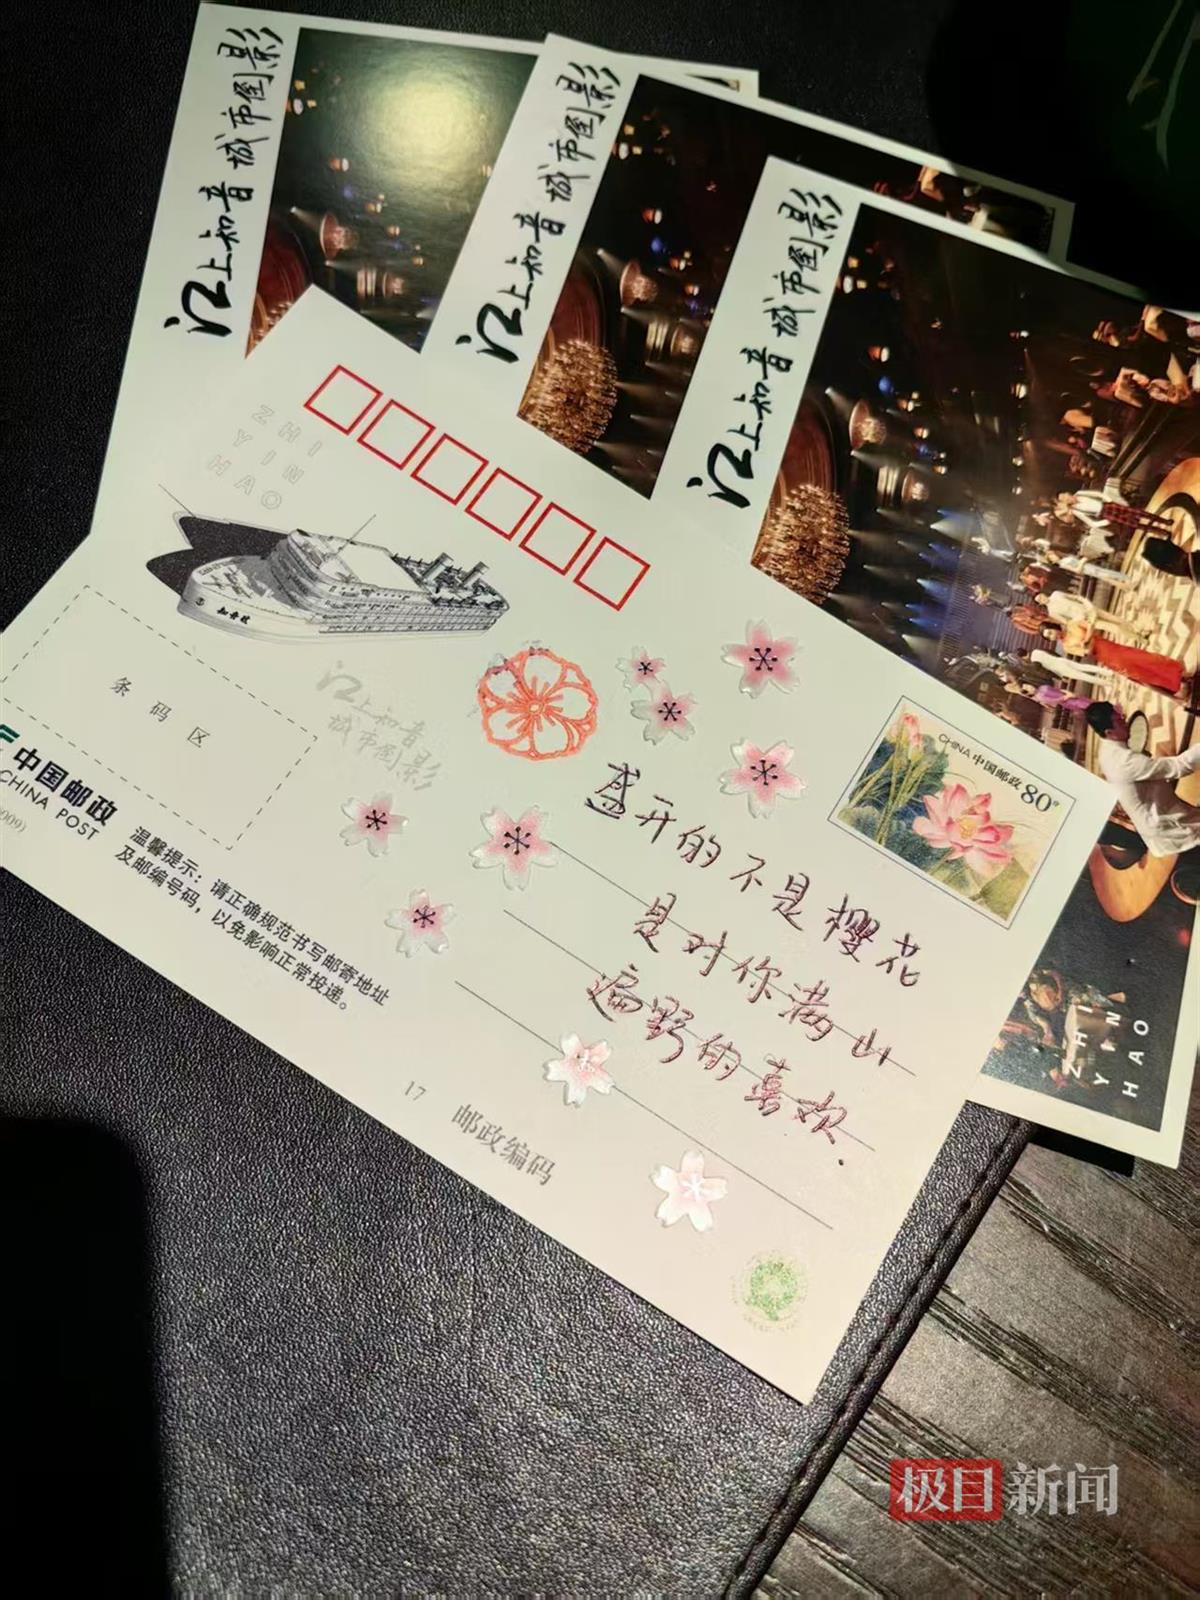 江上知音 城市倒影
江上知音 城市倒影
江上知音 城市倒影
ZHI
YIN
HAO
知音号
江上知音
城市倒影
条码区
中国邮政
CHINA POST
温馨提示：请正确规范书写邮寄地址
及邮编号码，以免影响正常投递。
CHINA 中国邮政 80分
盛开的不是樱花
是对你满山
遍野的喜欢.
17
邮政编码
ZHI
YIN
HAO
极目新闻